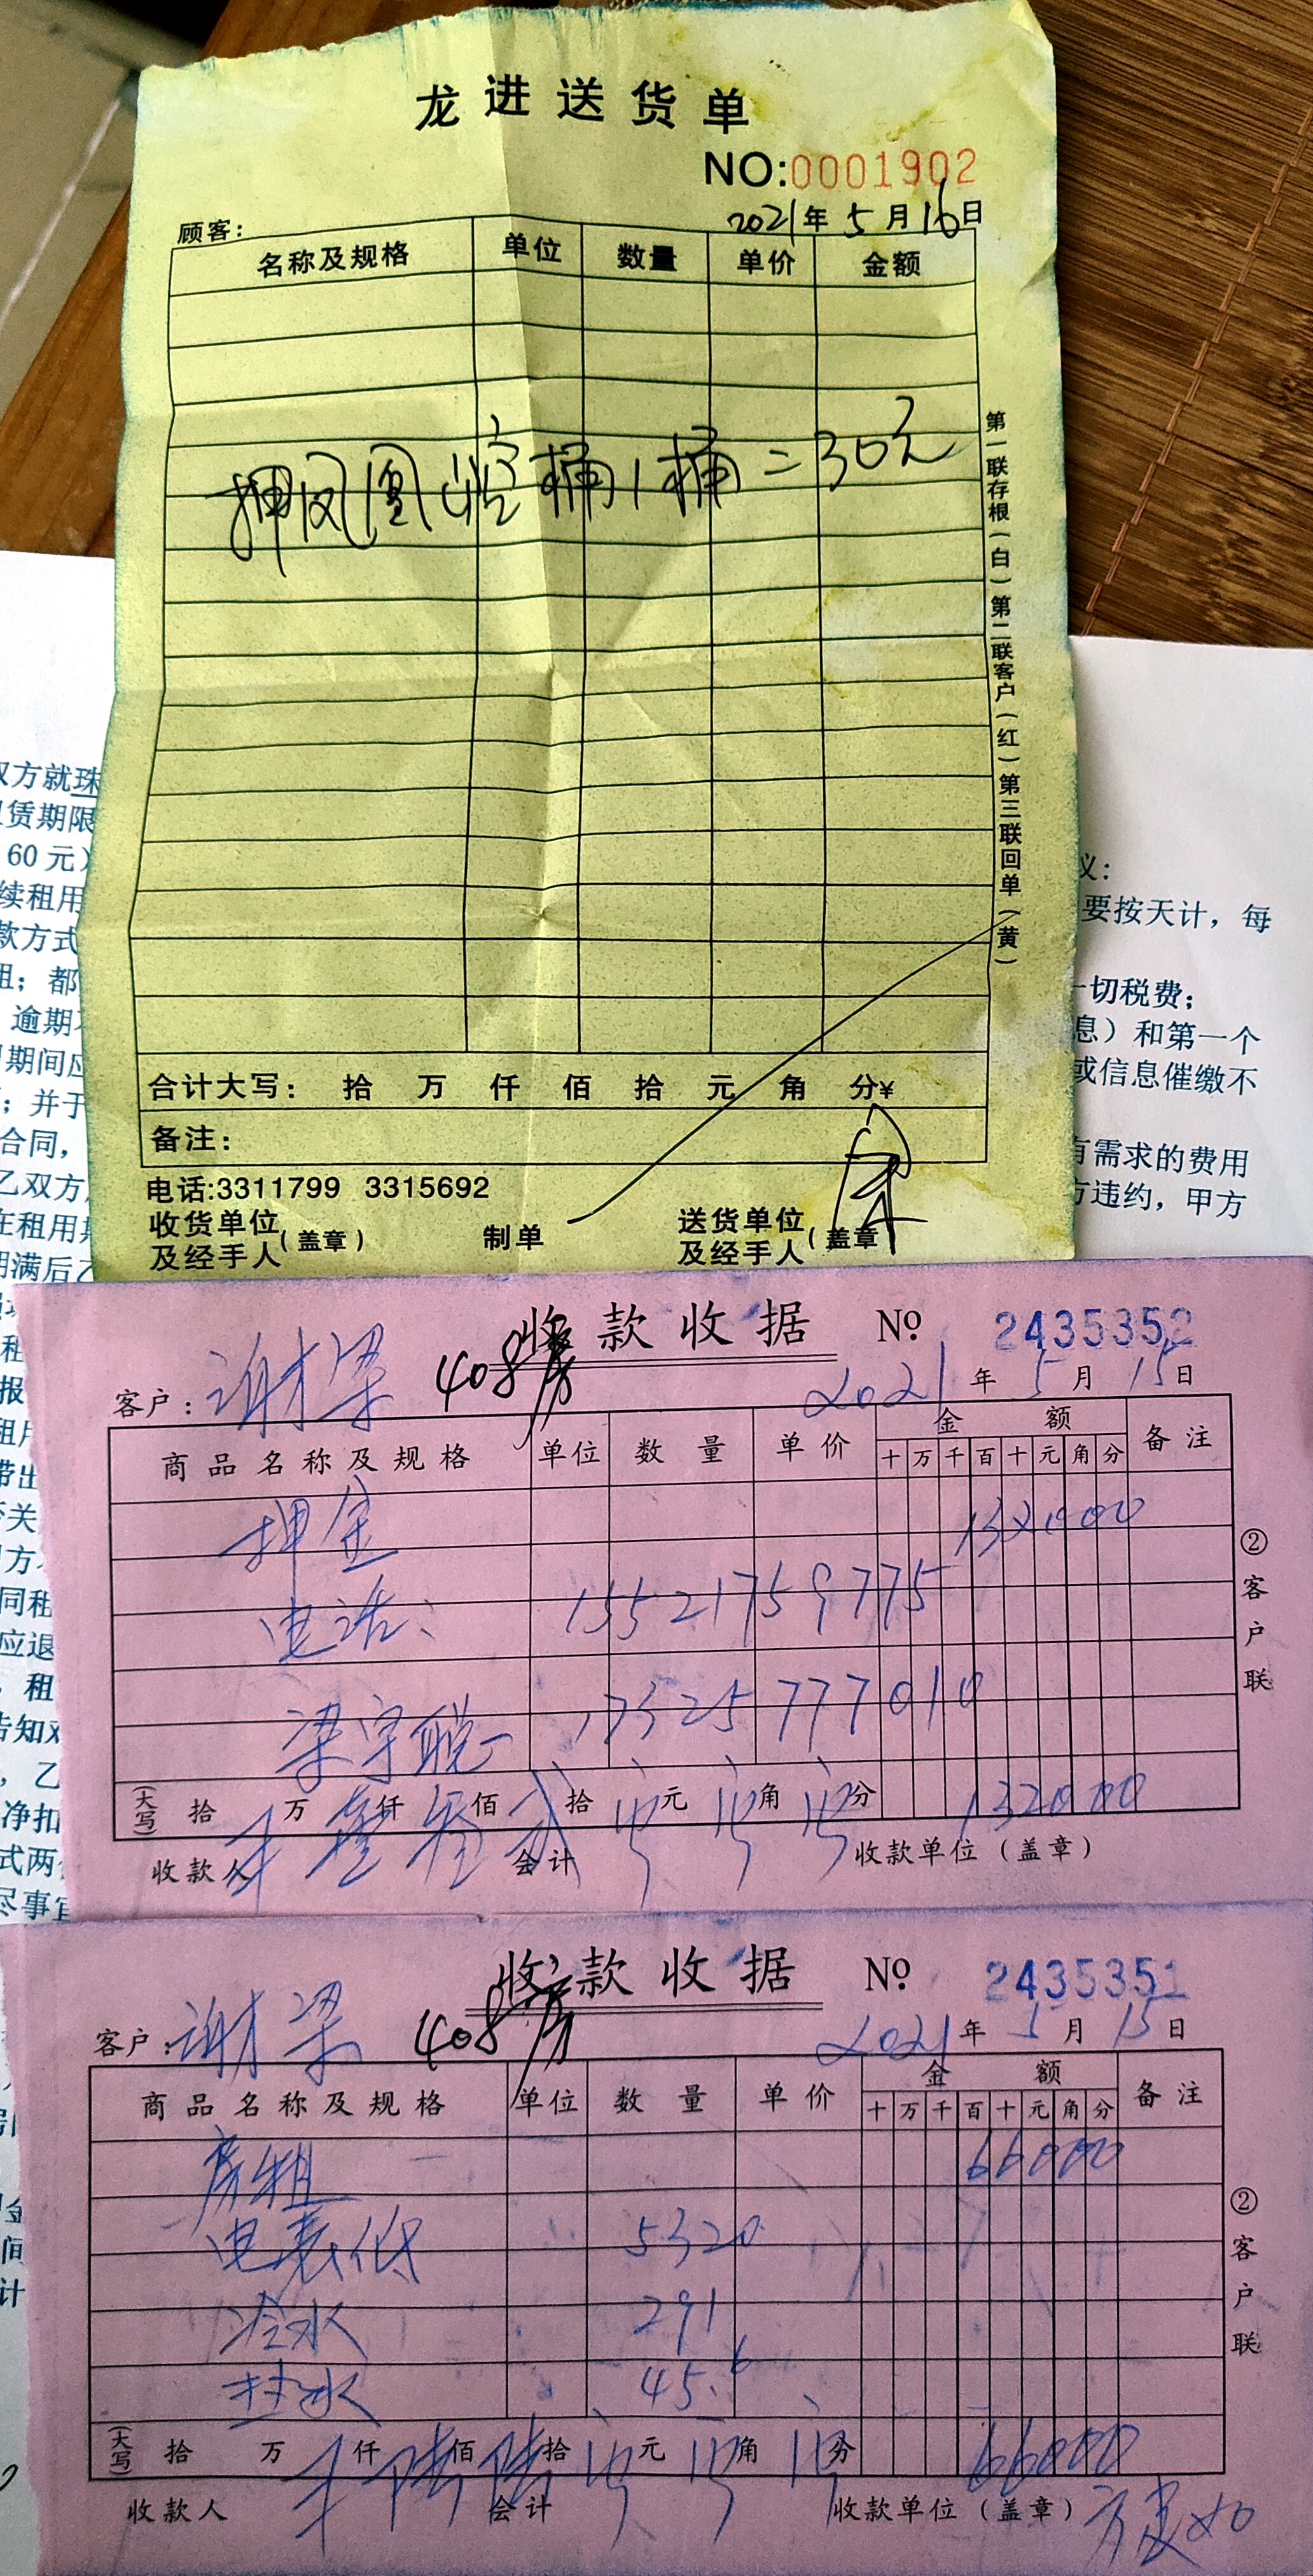 龙进送货单
NO:0001902
2021年5月16日
顾客:
名称及规格 单位 数量 单价 金额
押凤凰山空桶1桶=30元
第一联存根(白) 第二联客户(红) 第三联回单(黄)
合计大写: 拾 万 仟 佰 拾 元 角 分¥
备注:
电话:3311799 3315692
收货单位及经手人(盖章) 制单 送货单位及经手人(盖章)
双方就珠
赁期限
60元)
续租用
款方式
租;都
逾期
期间应
;并于
合同,
乙双方
在租用
期满后乙
议:
要按天计,每
一切税费;
息)和第一个
或信息催缴不
有需求的费用
方违约,甲方
收款收据 № 2435352
客户: 谢梁 408房 2021年5月15日
商品名称及规格 单位 数量 单价 金额 备注
十 万 千 百 十 元 角 分
押金 132000
电话: 15521759775
梁宇聪 17325777010
(大写) 拾 万 壹仟 叁佰 贰拾 元 角 分 132000
收款人 会计 收款单位(盖章)
②客户联
收款收据 № 2435351
客户: 谢梁 408房 2021年5月15日
商品名称及规格 单位 数量 单价 金额 备注
十 万 千 百 十 元 角 分
房租 66000
电表低 5320
冷水 291
热水 45.6
(大写) 拾 万 仟 陆佰 陆拾 元 角 分 66000
收款人 会计 收款单位(盖章)
②客户联